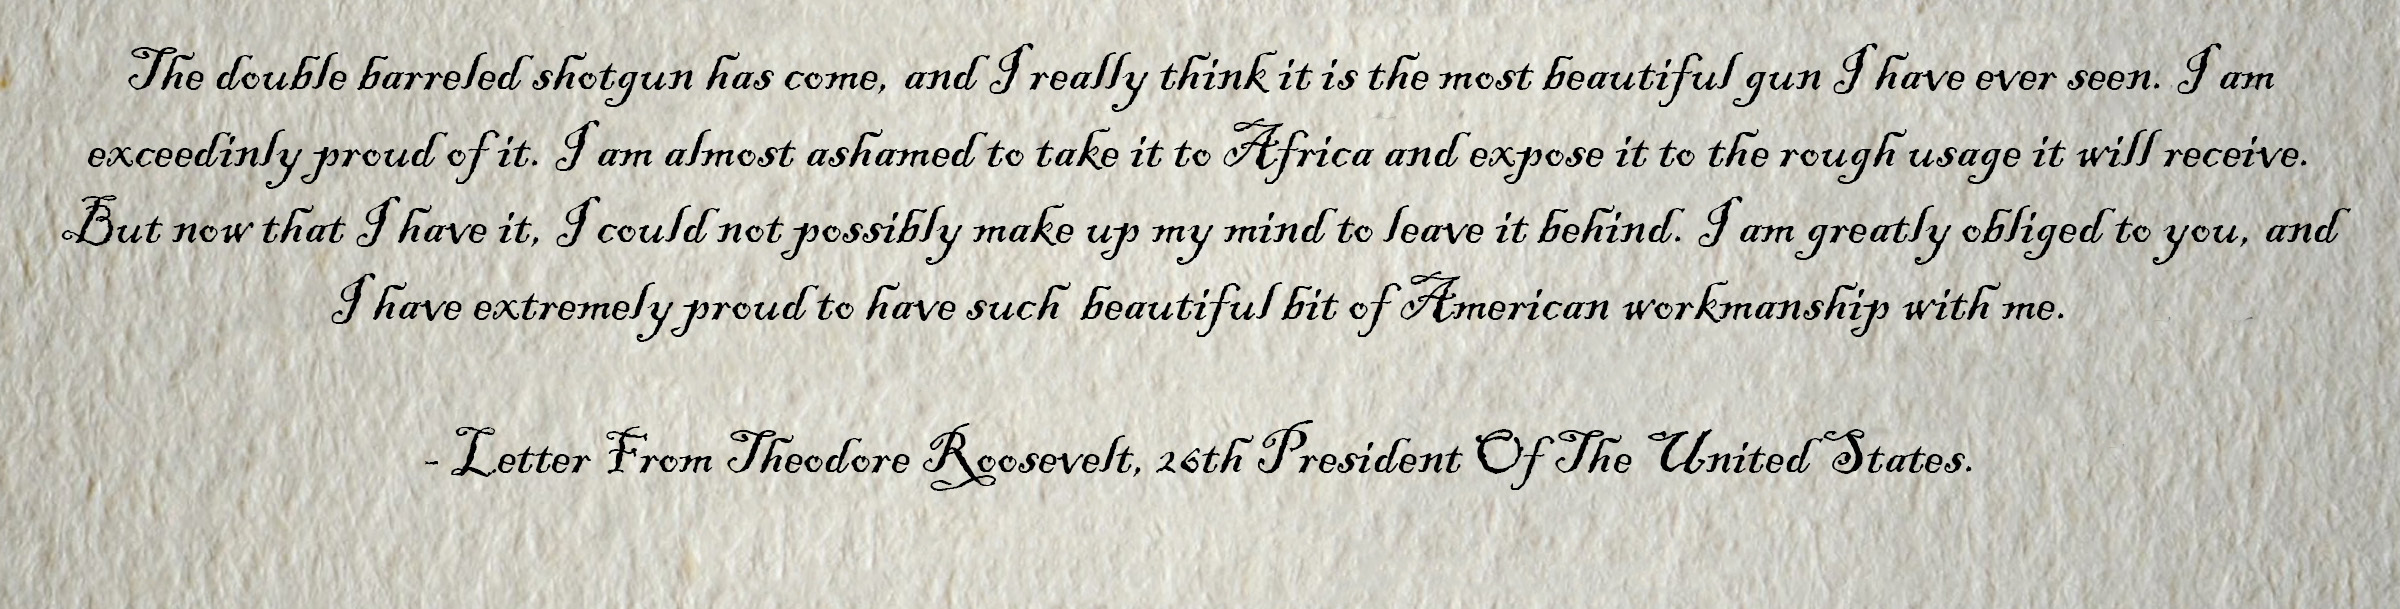 The double barreled shotgun has come, and I really think it is the most beautiful gun I have ever seen. I am
exceedinly proud of it. I am almost ashamed to take it to Africa and expose it to the rough usage it will receive.
But now that I have it, I could not possibly make up my mind to leave it behind. I am greatly obliged to you, and
I have extremely proud to have such beautiful bit of American workmanship with me.
- Letter From Theodore Roosevelt, 26th President Of The United States.